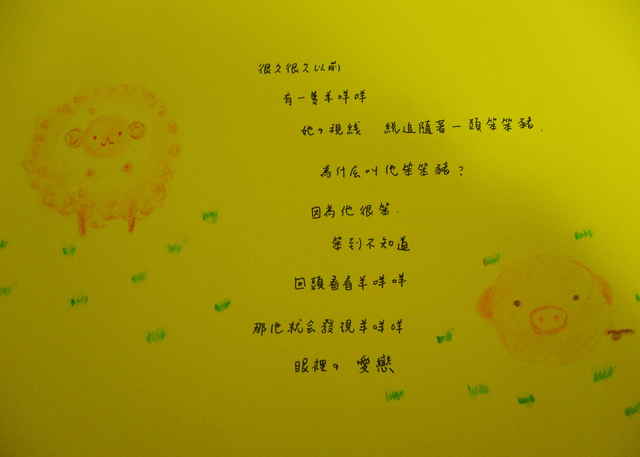 很久很久以前
有一隻羊咩咩
她的視線 總追隨著一頭笨笨豬.
為什么叫他笨笨豬?
因為他很笨.
笨到不知道
回頭看看羊咩咩
那他就会發現羊咩咩
眼裡的 愛戀